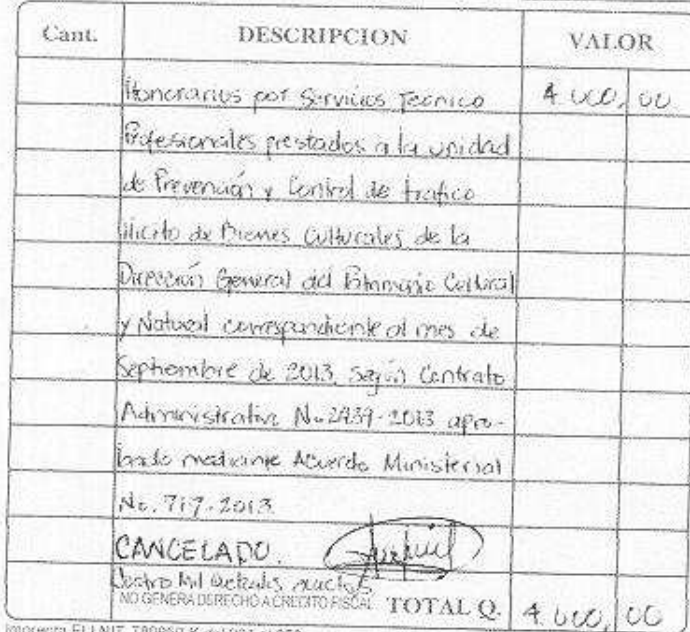 Cant. DESCRIPCION VALOR
Honorarios por Servicios Tecnico 4,000, 00
Profesionales prestados a la unidad
de Prevención y Control de trafico
ilicito de Bienes Culturales de la
Dirección General del Patrimonio Cultural
y Natural correspondiente al mes de
Septiembre de 2013, según Contrato
Administrativo No. 2939-2013 apro-
bado mediante Acuerdo Ministerial
No. 717-2013
CANCELADO.
Cuatro Mil Quetzales exactos
NO GENERA DERECHO A CREDITO FISCAL TOTAL Q. 4,000, 00
Imprenta